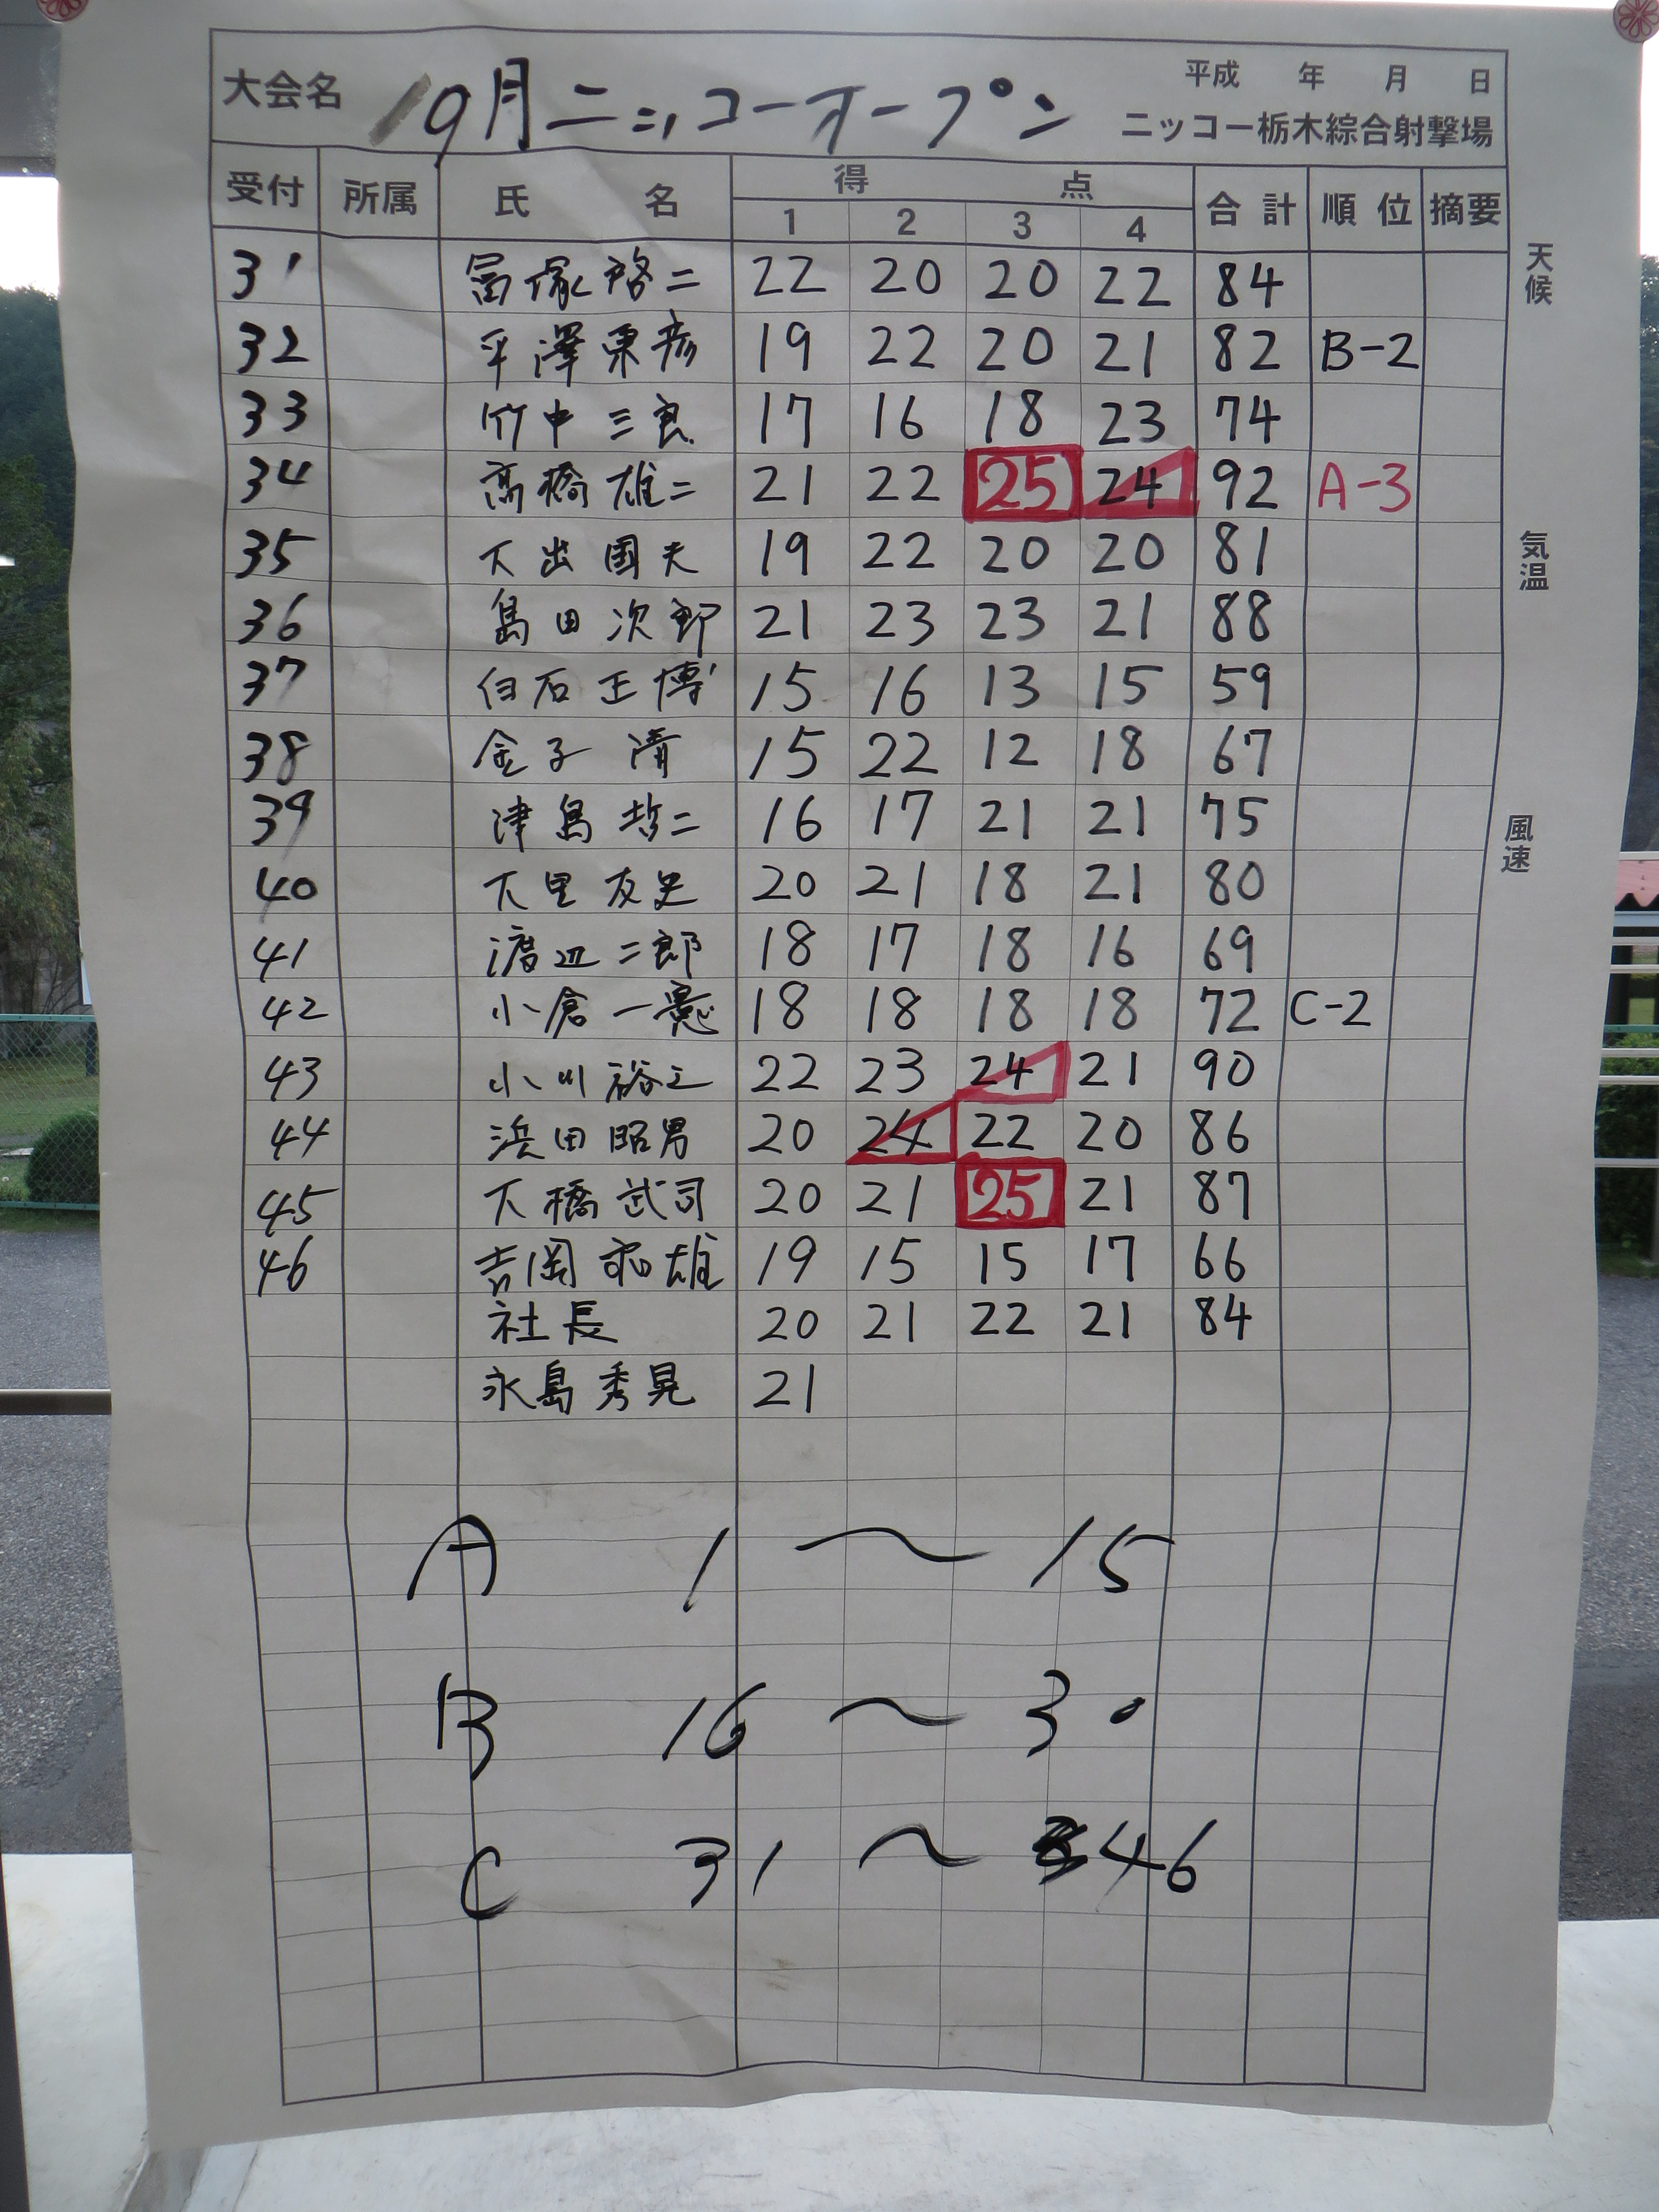 大会名 9月ニッコーオープン 平成 年 月 日
ニッコー栃木綜合射撃場
受付 所属 氏名 得点 合計 順位 摘要
1 2 3 4
31 冨塚啓二 22 20 20 22 84
32 平澤栗彦 19 22 20 21 82 B-2
33 竹中三良 17 16 18 23 74
34 高橋雄二 21 22 25 24 92 A-3
35 大出國夫 19 22 20 20 81
36 島田次郎 21 23 23 21 88
37 白石正博 15 16 13 15 59
38 金子 清 15 22 12 18 67
39 津島哲二 16 17 21 21 75
40 大里友史 20 21 18 21 80
41 渡辺二郎 18 17 18 16 69
42 小倉一憲 18 18 18 18 72 C-2
43 小川裕之 22 23 24 21 90
44 浜田昭男 20 24 22 20 86
45 大橋武司 20 21 25 21 87
46 吉岡和雄 19 15 15 17 66
社長 20 21 22 21 84
永島秀晃 21
A 1 〜 15
B 16 〜 30
C 31 〜 46
天候
気温
風速